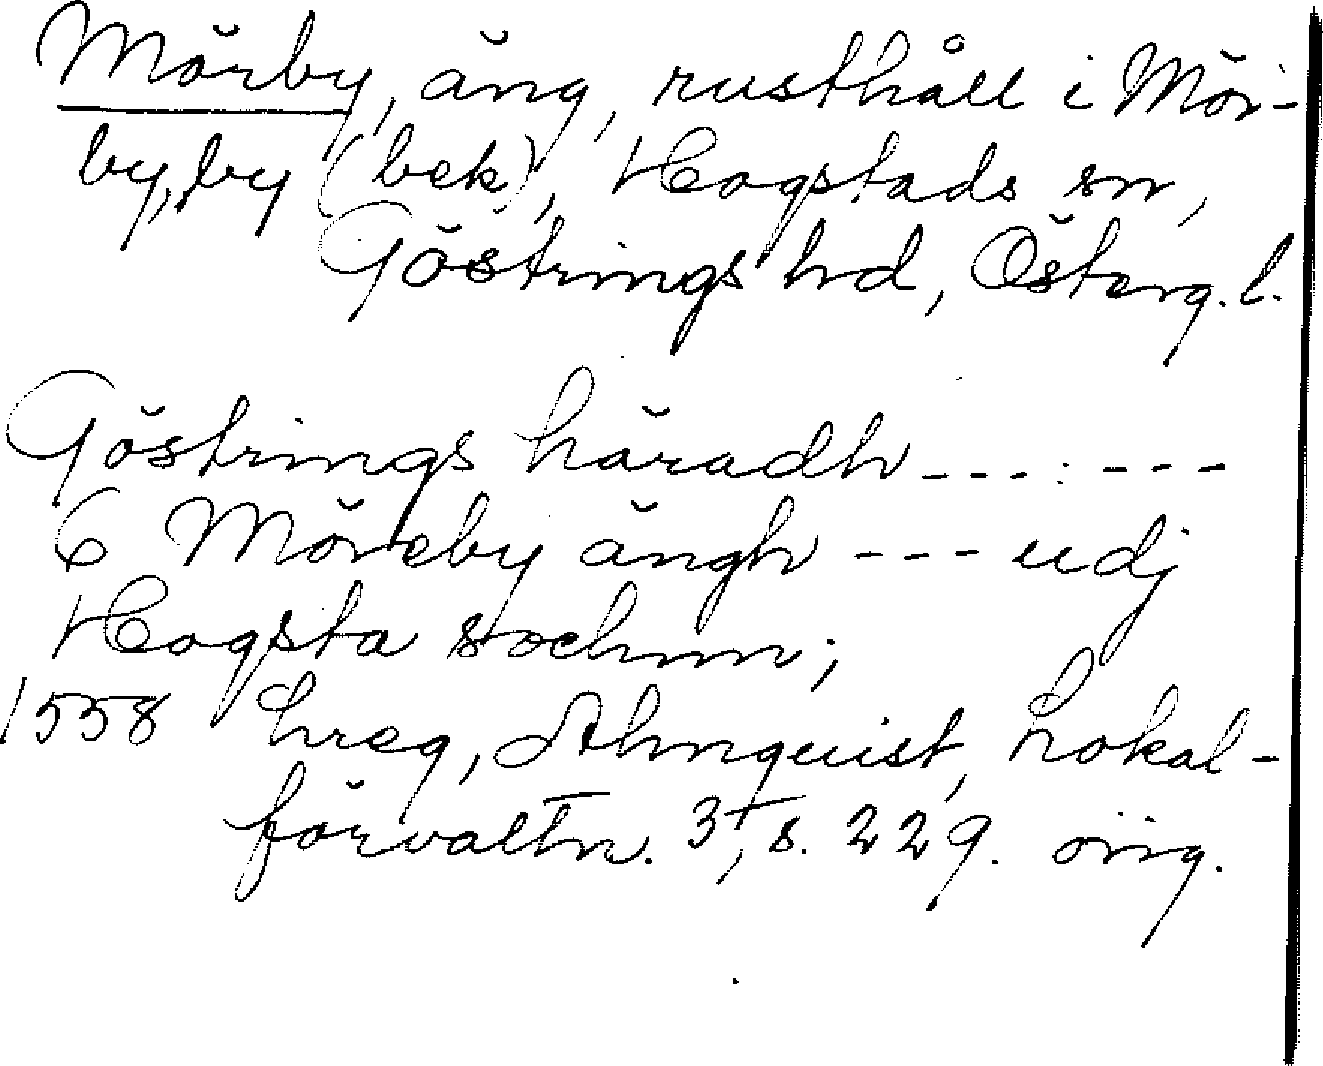 Mörby, äng, rusthåll i Mör-
by, by (bek), Hogstads sn,
Göstrings hd, Österg. l.
Göstrings häradh --- : ---
6 Möreby ängh --- udj
Hogsta sochnn;
1558 hreg, Almquist, Lokal-
förvaltn. 3, s. 229. örig.